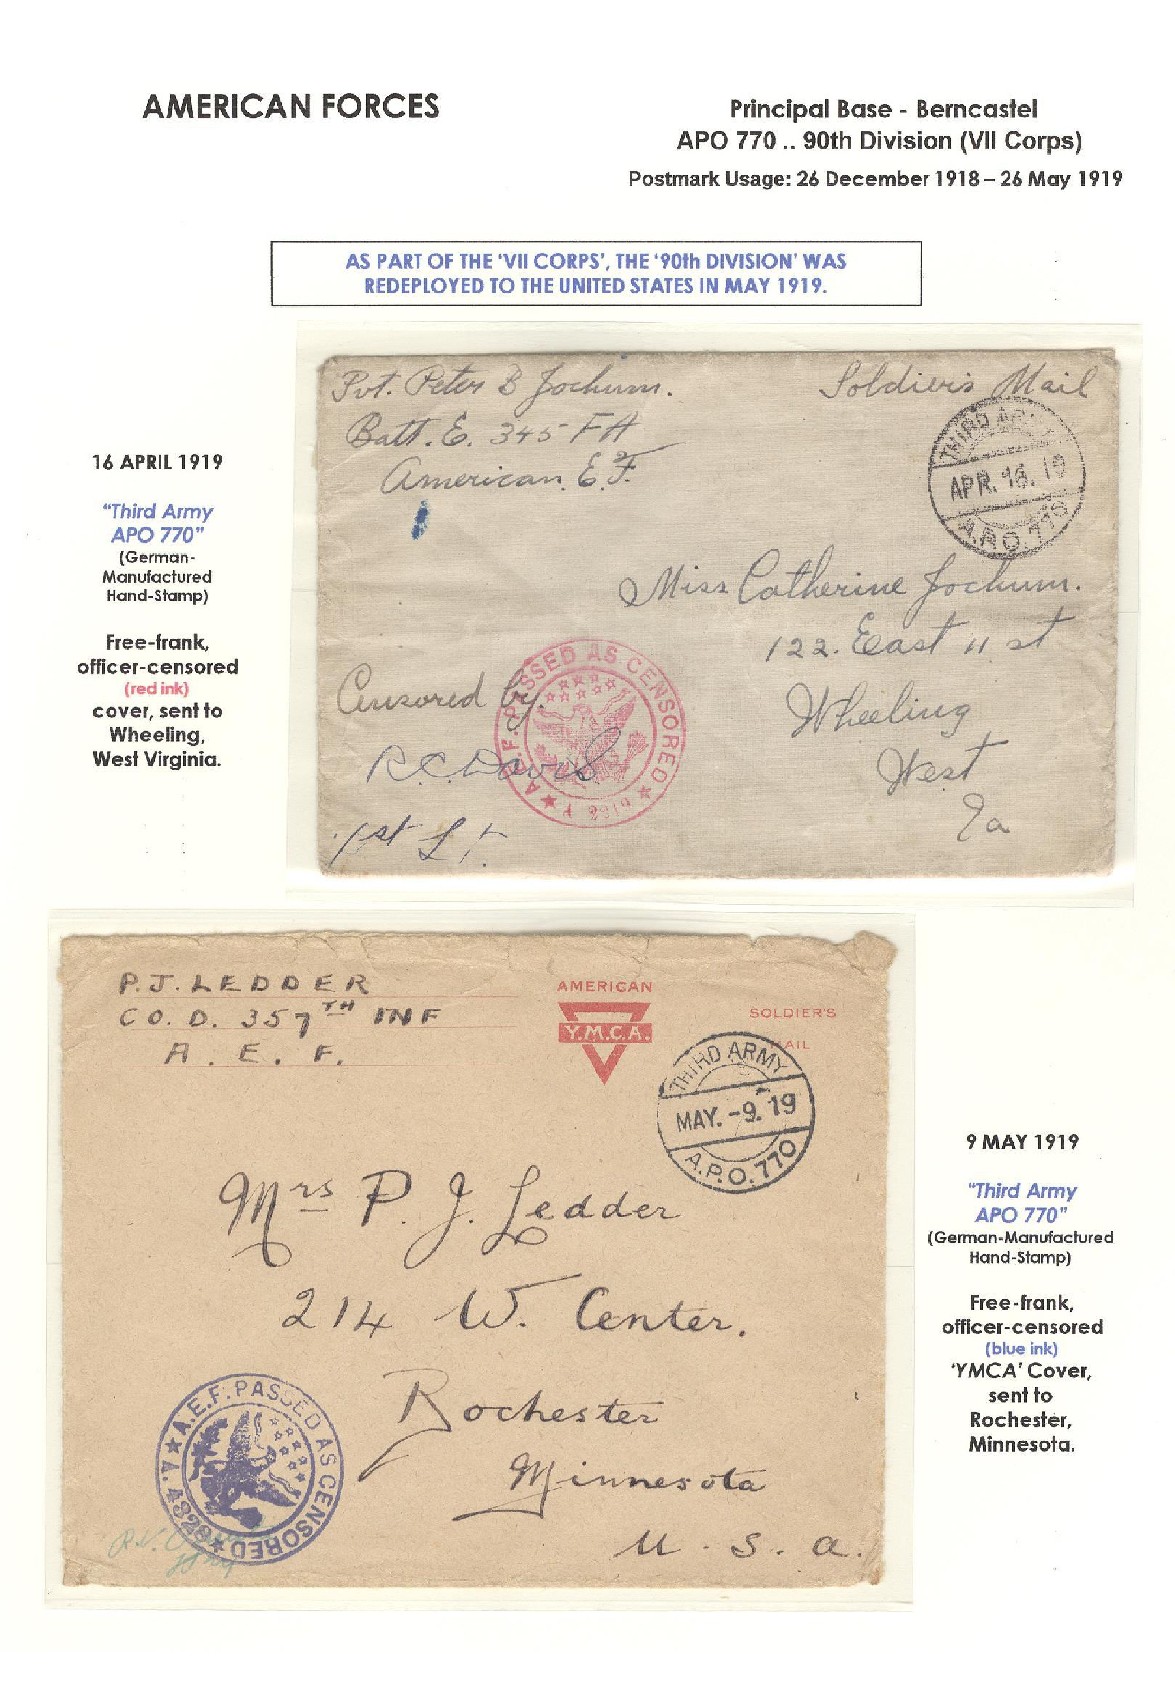 AMERICAN FORCES
Principal Base - Berncastel
APO 770 .. 90th Division (VII Corps)
Postmark Usage: 26 December 1918 – 26 May 1919
AS PART OF THE 'VII CORPS', THE '90th DIVISION' WAS
REDEPLOYED TO THE UNITED STATES IN MAY 1919.
16 APRIL 1919
"Third Army
APO 770"
(German-
Manufactured
Hand-Stamp)
Free-frank,
officer-censored
(red ink)
cover, sent to
Wheeling,
West Virginia.
Pvt. Peter B Jochum.
Batt. E. 345 FA
American. E. F.
Soldier's Mail
THIRD ARMY
APR. 16. 19
A.P.O. 770
Miss Catherine Jochum.
122. East 11 st
Wheeling
West
Va
Censored by.
R C Davis
1st Lt.
A.E.F. PASSED AS CENSORED
P. J. LEDDER
CO. D. 357TH INF
A. E. F.
AMERICAN
Y.M.C.A.
SOLDIER'S
MAIL
THIRD ARMY
MAY. -9. 19
A.P.O. 770
Mrs P. J. Ledder
214 W. Center.
Rochester
Minnesota
U. S. A.
A.E.F. PASSED AS CENSORED
A. 4828
9 MAY 1919
"Third Army
APO 770"
(German-Manufactured
Hand-Stamp)
Free-frank,
officer-censored
(blue ink)
'YMCA' Cover,
sent to
Rochester,
Minnesota.